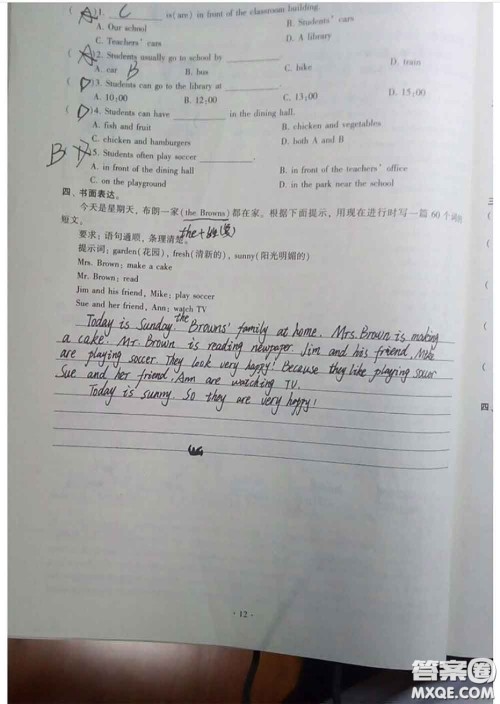 ( A )1. C is(are) in front of the classroom building.
A. Our school B. Students' cars
C. Teachers' cars D. A library
( A )2. Students usually go to school by
A. car B B. bus C. bike D. train
( D )3. Students can go to the library at
A. 10:00 B. 12:00 C. 13:00 D. 15:00
( D )4. Students can have in the dining hall.
A. fish and fruit B. chicken and vegetables
C. chicken and hamburgers D. both A and B
B 5. Students often play soccer
A. in front of the dining hall B. in front of the teachers' office
C. on the playground D. in the park near the school
四、书面表达。
今天是星期天，布朗一家(the Browns)都在家。根据下面提示，用现在进行时写一篇 60 个词的
短文。
要求：语句通顺，条理清楚。 the+姓(复)
提示词：garden(花园)，fresh(清新的)，sunny(阳光明媚的)
Mrs. Brown: make a cake
Mr. Brown: read
Jim and his friend, Mike: play soccer
Sue and her friend, Ann: watch TV
Today is Sunday. the Browns' family at home. Mrs. Brown is making
a cake. Mr. Brown is reading newpaper. Jim and his friend, Mike
are playing soccer. They look very happy! Because they like playing soccer
Sue and her friend, Ann are watching TV.
Today is sunny. So they are very happy!
· 12 ·
三
四
答案圈
MXQE.COM